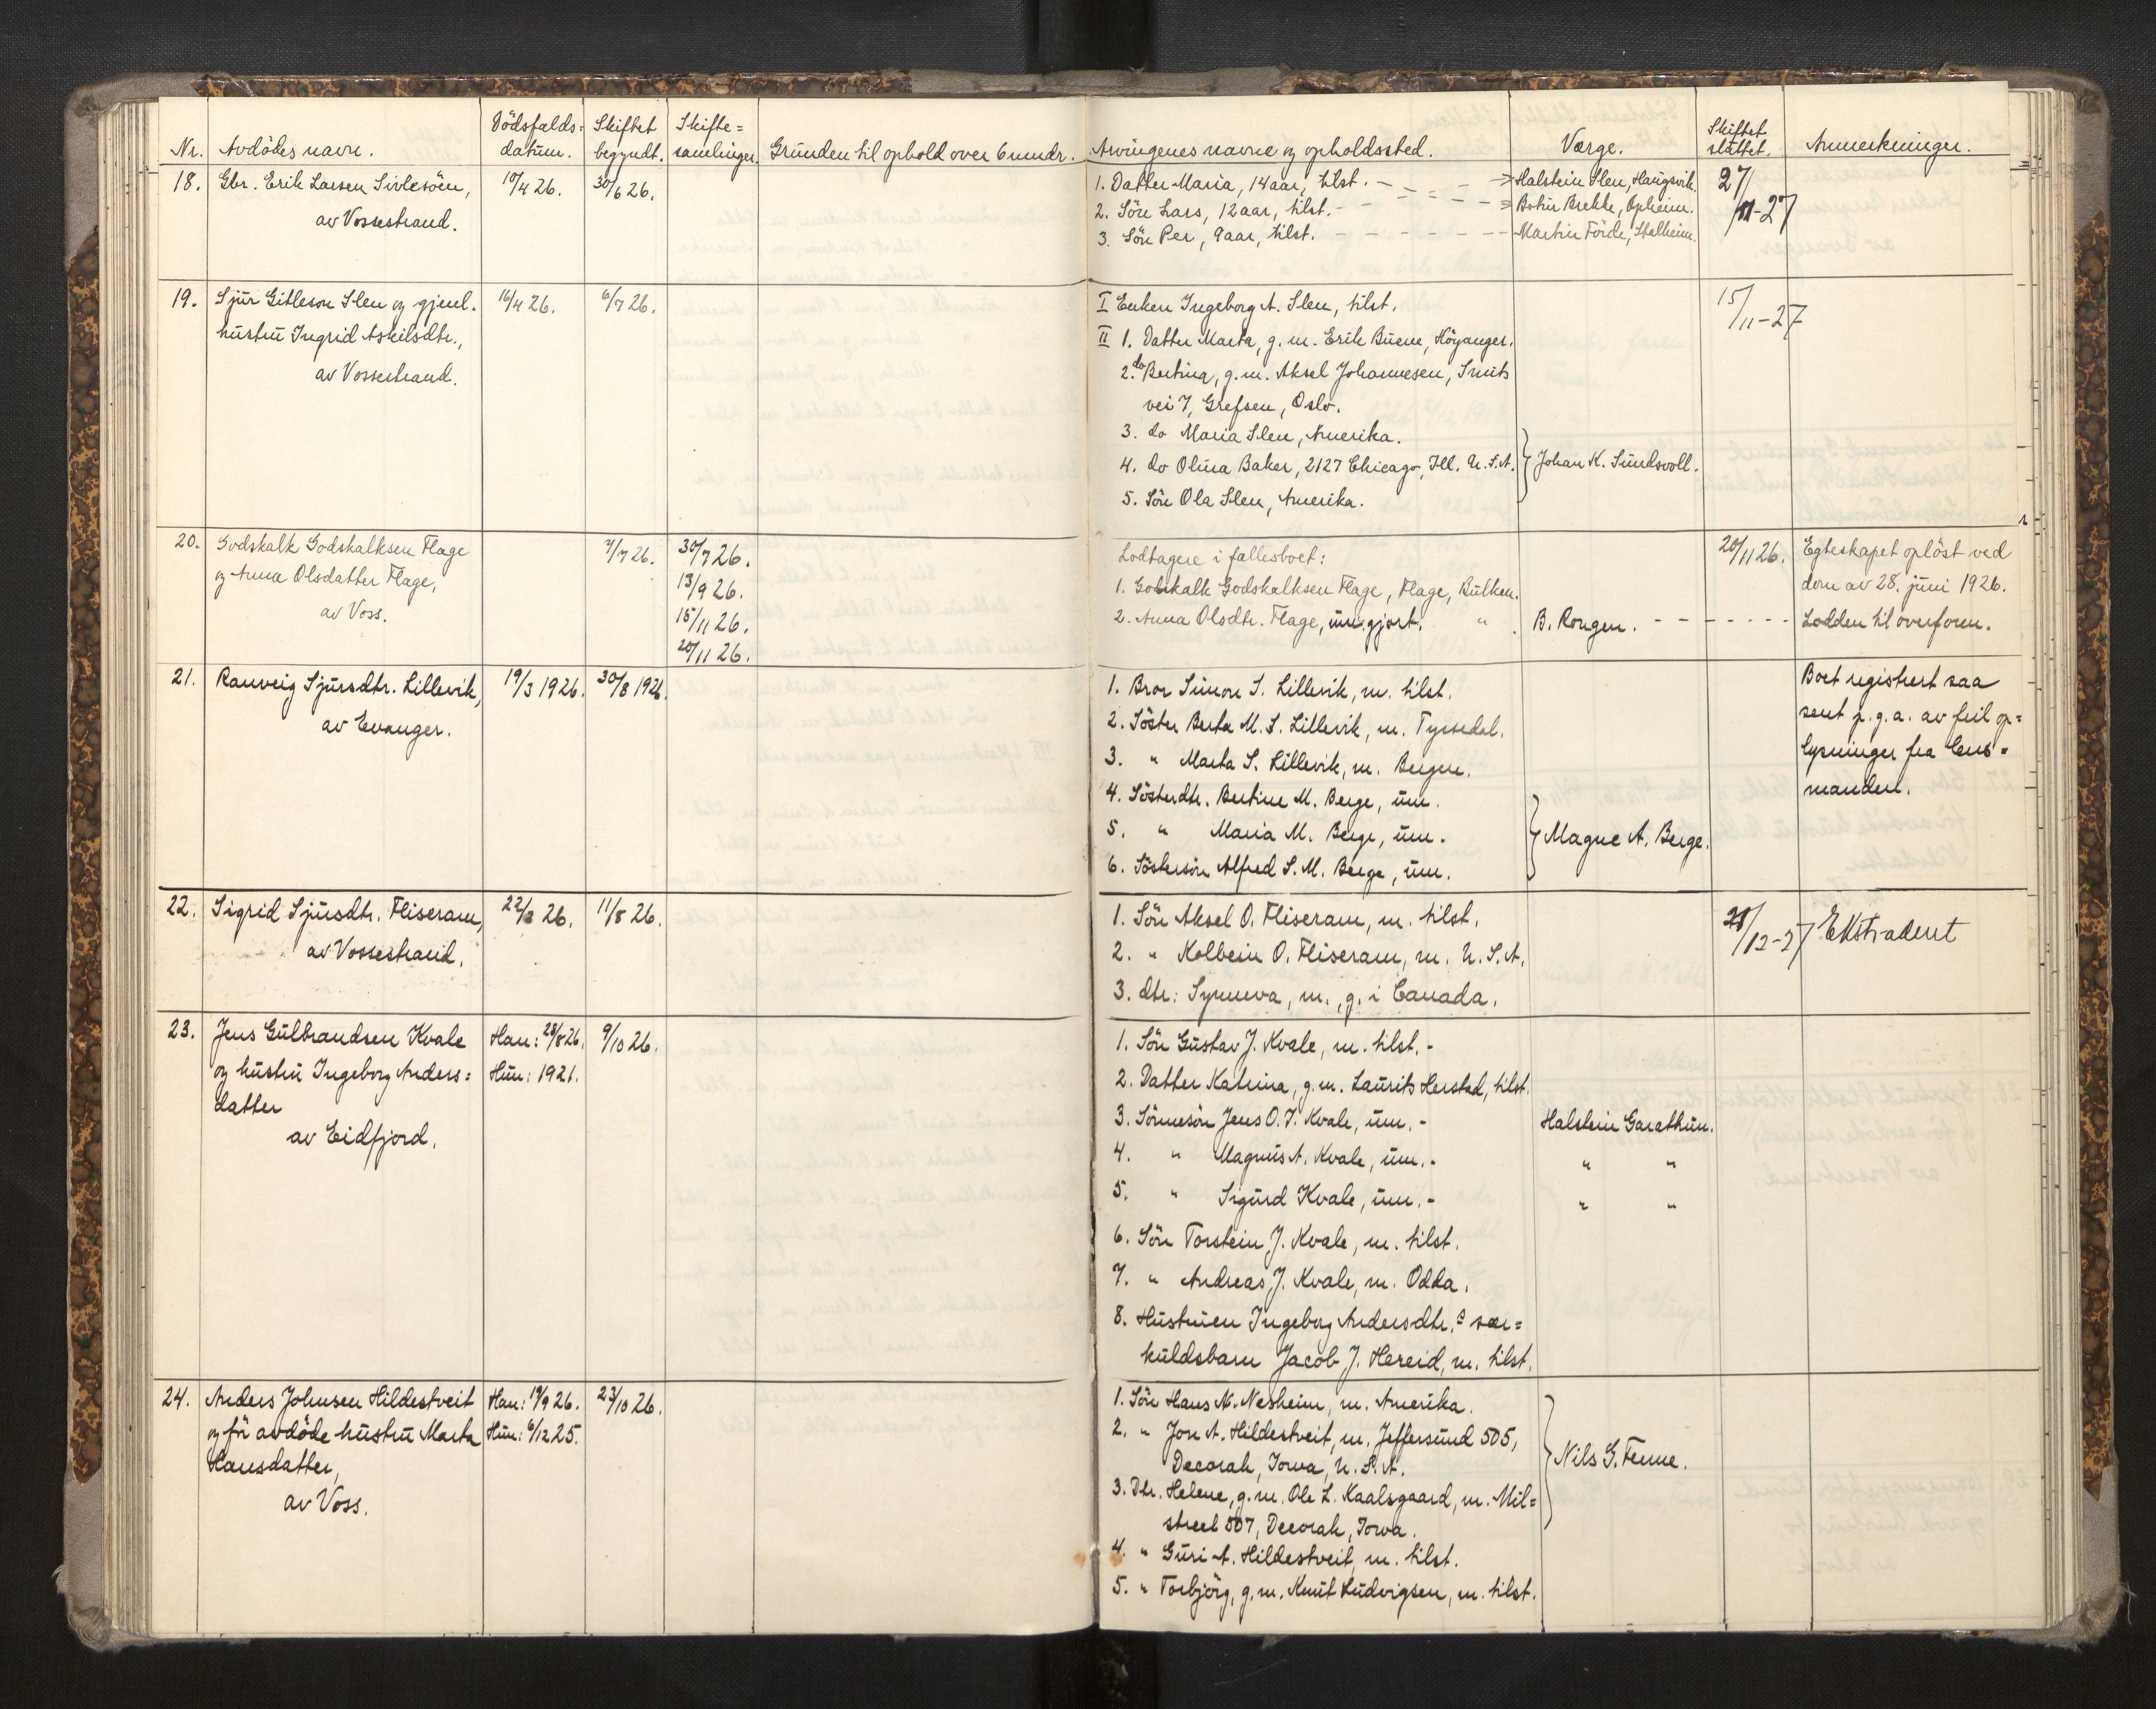 Nr. Avdödes navn. Dödsfalds= datum. Skiftet begyndt. Skifte= samlinger. Grunden til ophold over 6 mndr. Arvingenes navne og opholdssted. Værge. Skiftet sluttet. Anmerkninger.
18. Gbr. Erik Larsen Sivlesöen, 19/4 26. 30/6 26. 1. Datter Maria, 14 aar, tilst. - Halstein Slen, Haugsvik. 27/11-27
av Vossestrand. 2. Sön Lars, 12 aar, tilst. - Botin Brekke, Opheim.
3. Sön Per, 9 aar, tilst. - Martin Förde, Stalheim.
19. Sjur Gitleson Slen og gjenl. 16/4 26. 6/7 26. I Enken Ingeborg A. Slen, tilst. 15/11-27
hustru Ingrid Askilsdtr., II 1. Datter Marta, g. m. Erik Buene, Höyanger.
av Vossestrand. 2. do Bertina, g. m. Aksel Johannesen, Smits
vei 7, Grefsen, Oslo.
3. do Maria Slen, Amerika.
4. do Olina Baker, 2127 Chicago, Ill. U.S.A. Johan K. Sundsvoll.
5. Sön Ola Slen, Amerika.
20. Godskalk Godskalksen Flage 7/7 26. 30/7 26. Lodtagere i fællesboet: 20/11 26. Egteskapet oplöst ved
og Anna Olsdatter Flage, 13/9 26. 1. Godskalk Godskalksen Flage, Flage, Bulken. dom av 28. juni 1926.
av Voss. 15/11 26. 2. Anna Olsdtr. Flage, um.gjort. " B. Rongen. - - - - - - Lodden til overform.
20/11 26.
21. Ranveig Sjursdtr. Lillevik, 19/3 1926. 30/8 1926. 1. Bror Simon S. Lillevik, m. tilst. Boet registrert saa
av Evanger. 2. Söster Berta M. S. Lillevik, m. Tyssedal. sent p.g.a. av feil op=
3. " Marta S. Lillevik, m. Bergen. lysninger fra lens=
4. Sösterdtr. Bertine M. Berge, um. manden.
5. " Maria M. Berge, um. Magne A. Berge.
6. Söstersön Alfred S. M. Berge, um.
22. Sigrid Sjursdtr. Fliseram, 22/ 26. 11/8 26. 1. Sön Aksel O. Fliseram, m. tilst. /12-27 Ekstradert
av Vossestrand. 2. " Kolbein O. Fliseram, m. U.S.A.
3. dtr: Synneva, m., g. i Canada.
23. Jens Gulbrandsen Kvale Han: 28/8 26. 9/10 26. 1. Sön Gustav J. Kvale, m. tilst. -
og hustru Ingeborg Anders= Hun: 1921. 2. Datter Katrina, g. m. Laurits Herstad, tilst.
datter 3. Sönnesön Jens O. J. Kvale, um. - Halstein Garathun.
av Eidfjord. 4. " Magnus A. Kvale, um. - " "
5. " Sigurd Kvale, um. - " "
6. Sön Torstein J. Kvale, m. tilst.
7. " Andreas J. Kvale, m. Odda.
8. Hustruen Ingeborg Andersdtr.s sær=
kuldsbarn Jacob J. Hereid, m. tilst.
24. Anders Johnsen Hildestveit Han: 19/9 26. 23/10 26. 1. Sön Hans N. Nesheim, m. Amerika.
og för avdöde hustru Marta Hun: 6/12 25. 2. " Jon A. Hildestveit, m. Jeffersund 505,
Hansdatter, Decorah, Iowa, U.S.A. Nils G. Fenne.
av Voss. 3. Dtr. Helene, g. m. Ole L. Kaalsgaard, m. Mil=
street 507, Decorah, Iowa.
4. " Guri A. Hildestveit, m. tilst.
5. " Torbjörg, g. m. Knut Ludvigsen, m. tilst.